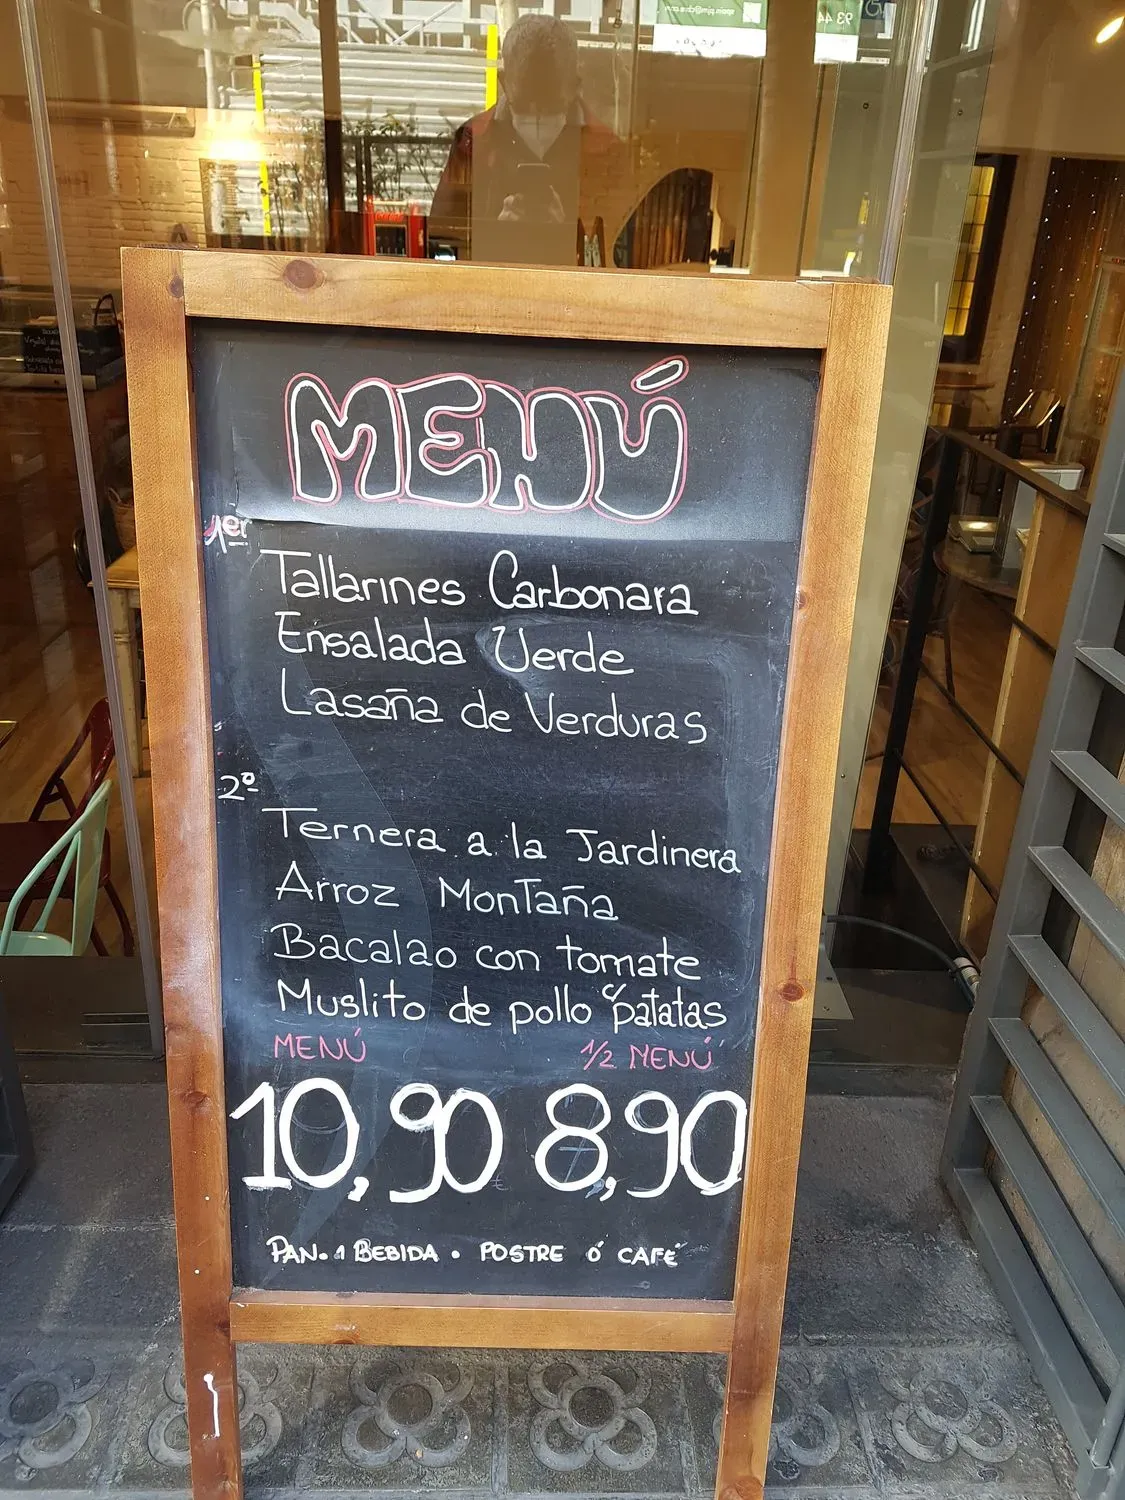 MENÚ
1er
Tallarines Carbonara
Ensalada Verde
Lasaña de Verduras
2º
Ternera a la Jardinera
Arroz Montaña
Bacalao con tomate
Muslito de pollo y patatas
MENÚ 1/2 MENÚ
10,90 8,90
PAN. 1 BEBIDA . POSTRE Ó CAFÉ